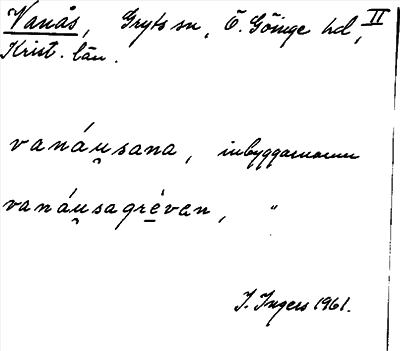 Vanås, Gryts sn, Ö. Göinge hd, II
Krist. län.
vanáu̯sana, inbyggarnamn
vanáu̯sagrèven, "
I. Ingers 1961.